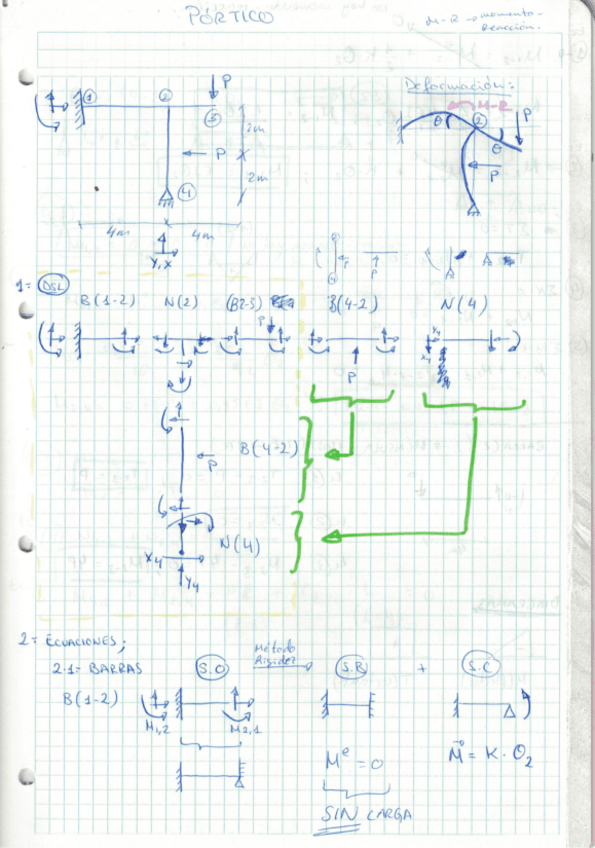 PÓRTICO
M-R → momento-
reacción.
Deformación:
M-2
P
①
②
③
P
θ
②
P
θ
2m
P
P
2m
④
4m
4m
Y, X
1= DSL
B(1-2)
N(2)
B(4-2)
N(4)
P
P
X4
P
B(4-2)
N(4)
X4
Y4
2= ECUACIONES;
2.1= BARRAS
S.O
Método
Rigidez
S.B
+
S.C
B(1-2)
M1,2
M2,1
Mᵉ = 0
M⃗ = K · O2
SIN CARGA